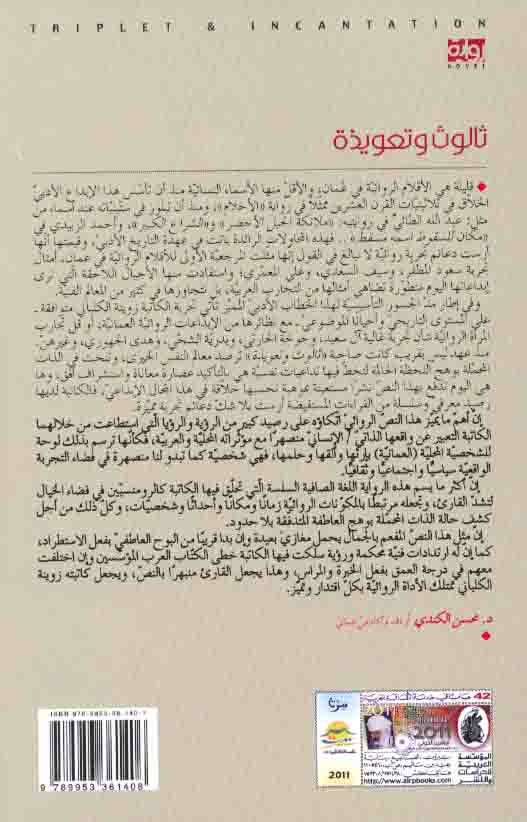 TRIPLET & INCANTATION
رواية
NOVEL
ثالوث وتعويذة
قليلة هي الأقلام الروائية في عُمان، والأقلّ منها الأسماء النسائية منذ أن تأسّس هذا الإبداع الأدبيّ
الخلّاق في ثلاثينيات القرن العشرين ممثّلاً في رواية «الأحلام»، ومنذ أن تبلور في ستينياته عند أسماء من
مثل: عبد الله الطائي في روايتيه: «ملائكة الجبل الأخضر» و«الشراع الكبير»، وأحمد الزبيدي في
أرست دعائم تجربة روائية لا نبالغ في القول إنها مثلت المرجعية الأولى للأقلام الروائية في عمان، أمثال
تجربة سعود المظفر، وسيف السعدي، وعلي المعمري؛ واستفادت منها الأجيال اللاحقة التي نرى
إبداعاتها اليوم متطورة تضاهي أمثالها من التجارب العربية، بل تتجاوزها في كثير من المعالم الفنية.
وفي إطار مدّ الجسور التأسيسية لهذا الخطاب الأدبيّ المميّز تأتي تجربة الكاتبة زوينة الكلباني متوافقة ـ
على المستوى التاريخي وأحياناً الموضوعي ـ مع نظائرها من الإبداعات الروائية العمانية، أو قل تجارب
المرأة الروائية شأن تجربة غالية آل سعيد، وجوخة الحارثي، وبدرية الشحي، وهدى الجهوري، وغيرهنّ.
هي اليوم تدفع بهذا النصّ نشراً مستعينة بموهبة تحسبها خلاقة في هذا المجال الإبداعيّ، فالكاتبة لديها
رصيد معرفيّ وسلسلة من القراءات المستفيضة أرست بلا شك دعائم تجربة مميّزة.
إن أهمّ ما يميّز هذا النصّ الروائيّ اتكاؤه على رصيد كبير من الرؤية والرؤيا التي استطاعت من خلالهما
الكاتبة التعبير عن واقعها الذاتي / الإنسانيّ منصهراً مع مؤثراته المحليّة والعربية، فكأنها ترسم بذلك لوحة
للشخصية المحليّة (العمانيّة) بإرثها وألقها وحلمها، فهي شخصيّة كما تبدو لنا منصهرة في فضاء التجربة
الواقعيّة سياسيّاً واجتماعيّاً وثقافيّاً.
إن أكثر ما يسم هذه الرواية اللغة الصافية السلسة التي تحلّق فيها الكاتبة كالرومنسيّين في فضاء الخيال
لتشدّ القارئ، وتجعله مرتبطاً بالمكوّنات الروائيّة زماناً ومكاناً وأحداثاً وشخصيّات، وكلّ ذلك من أجل
كشف حالة الذات المحمّلة بوهج العاطفة المتدفقة بلا حدود.
إن مثل هذا النصّ المفعم بالجمال يحمل مغازيَ بعيدة وإن بدا قريباً من البوح العاطفيّ بفعل الاستطراد،
كما إن له ارتدادات فنيّة محكمة ورؤية سلكت فيها الكاتبة خطى الكتّاب العرب المؤسّسين وإن اختلفت
معهم في درجة العمق بفعل الخبرة والمراس، وهذا يجعل القارئ منبهراً بالنصّ، ويجعل كاتبته زوينة
الكلباني تمتلك الأداة الروائيّة بكلّ اقتدار وتميّز.
د. محسن الكندي / ناقد وأكاديميّ عُمانيّ
ISBN 978-9953-36-140-7
9 789953 361408
2011
42
2011
المؤسسة
العربية
للدراسات
والنشر
http://www.airpbooks.com